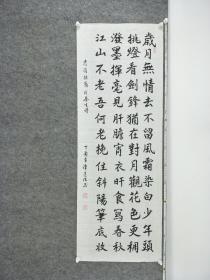 歲月無情去不留風霜染白少年頭
挑燈看劍鋒猶在對月觀花色更稠
潑墨揮毫見肝膽宵衣旰食寫春秋
江山不老吾何老挽住斜陽筆底收